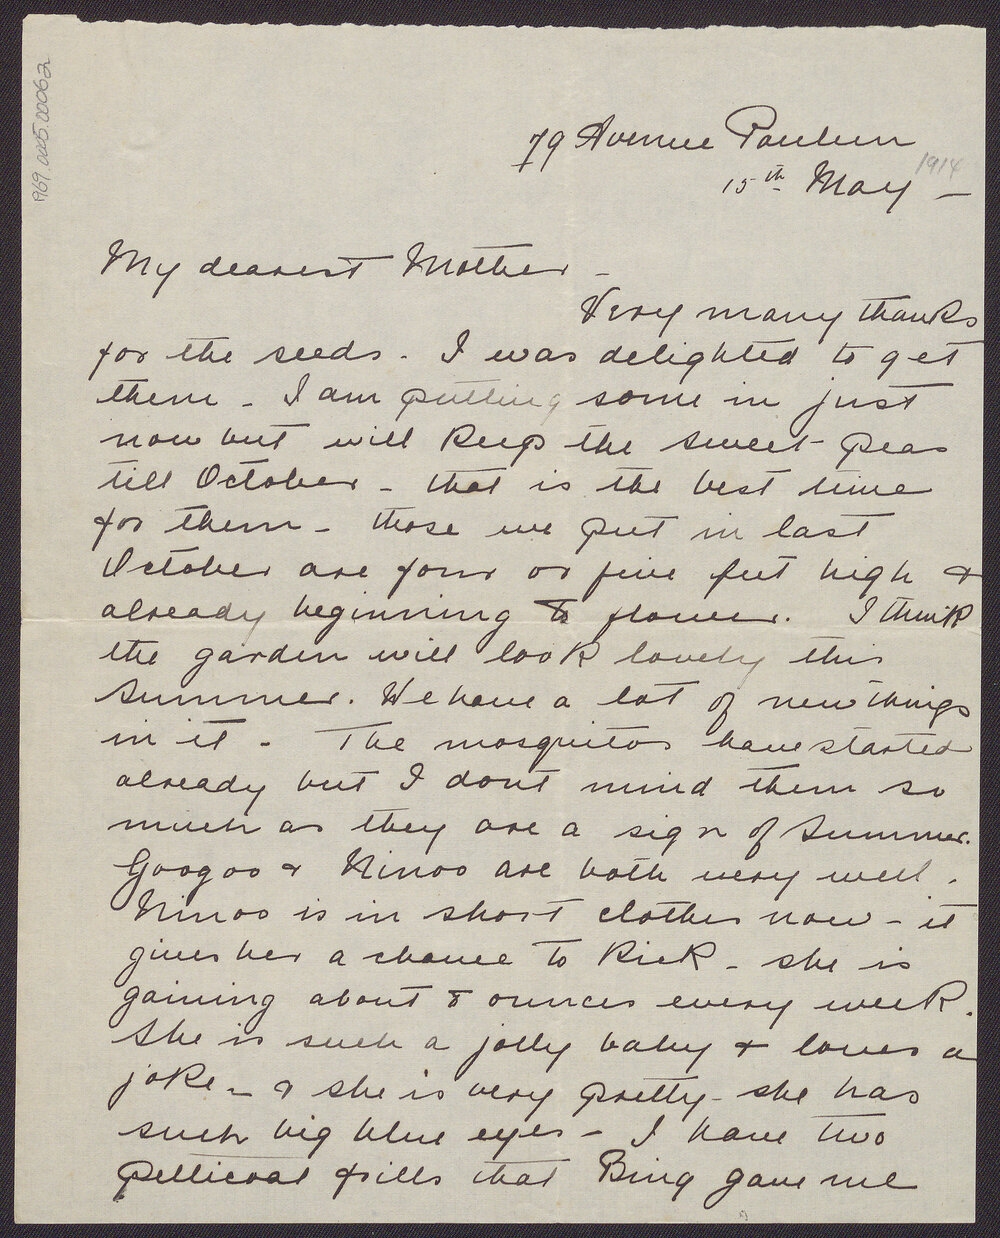 969.005.00062
79 Avenue Paulun
15th May - 1914
My dearest Mother -
Very many thanks
for the seeds - I was delighted to get
them - I am putting some in just
now but will keep the sweet peas
till October - that is the best time
for them - those we put in last
October are four or five feet high &
already beginning to flower. I think
the garden will look lovely this
summer. We have a lot of new things
in it - The mosquitos have started
already but I dont mind them so
much as they are a sign of summer.
Googoo & Ninoo are both very well.
Ninoo is in short clothes now - it
gives her a chance to kick - she is
gaining about 8 ounces every week.
She is such a jolly baby & loves a
joke - & she is very pretty - she has
such big blue eyes - I have two
petticoat frills that Bing gave me